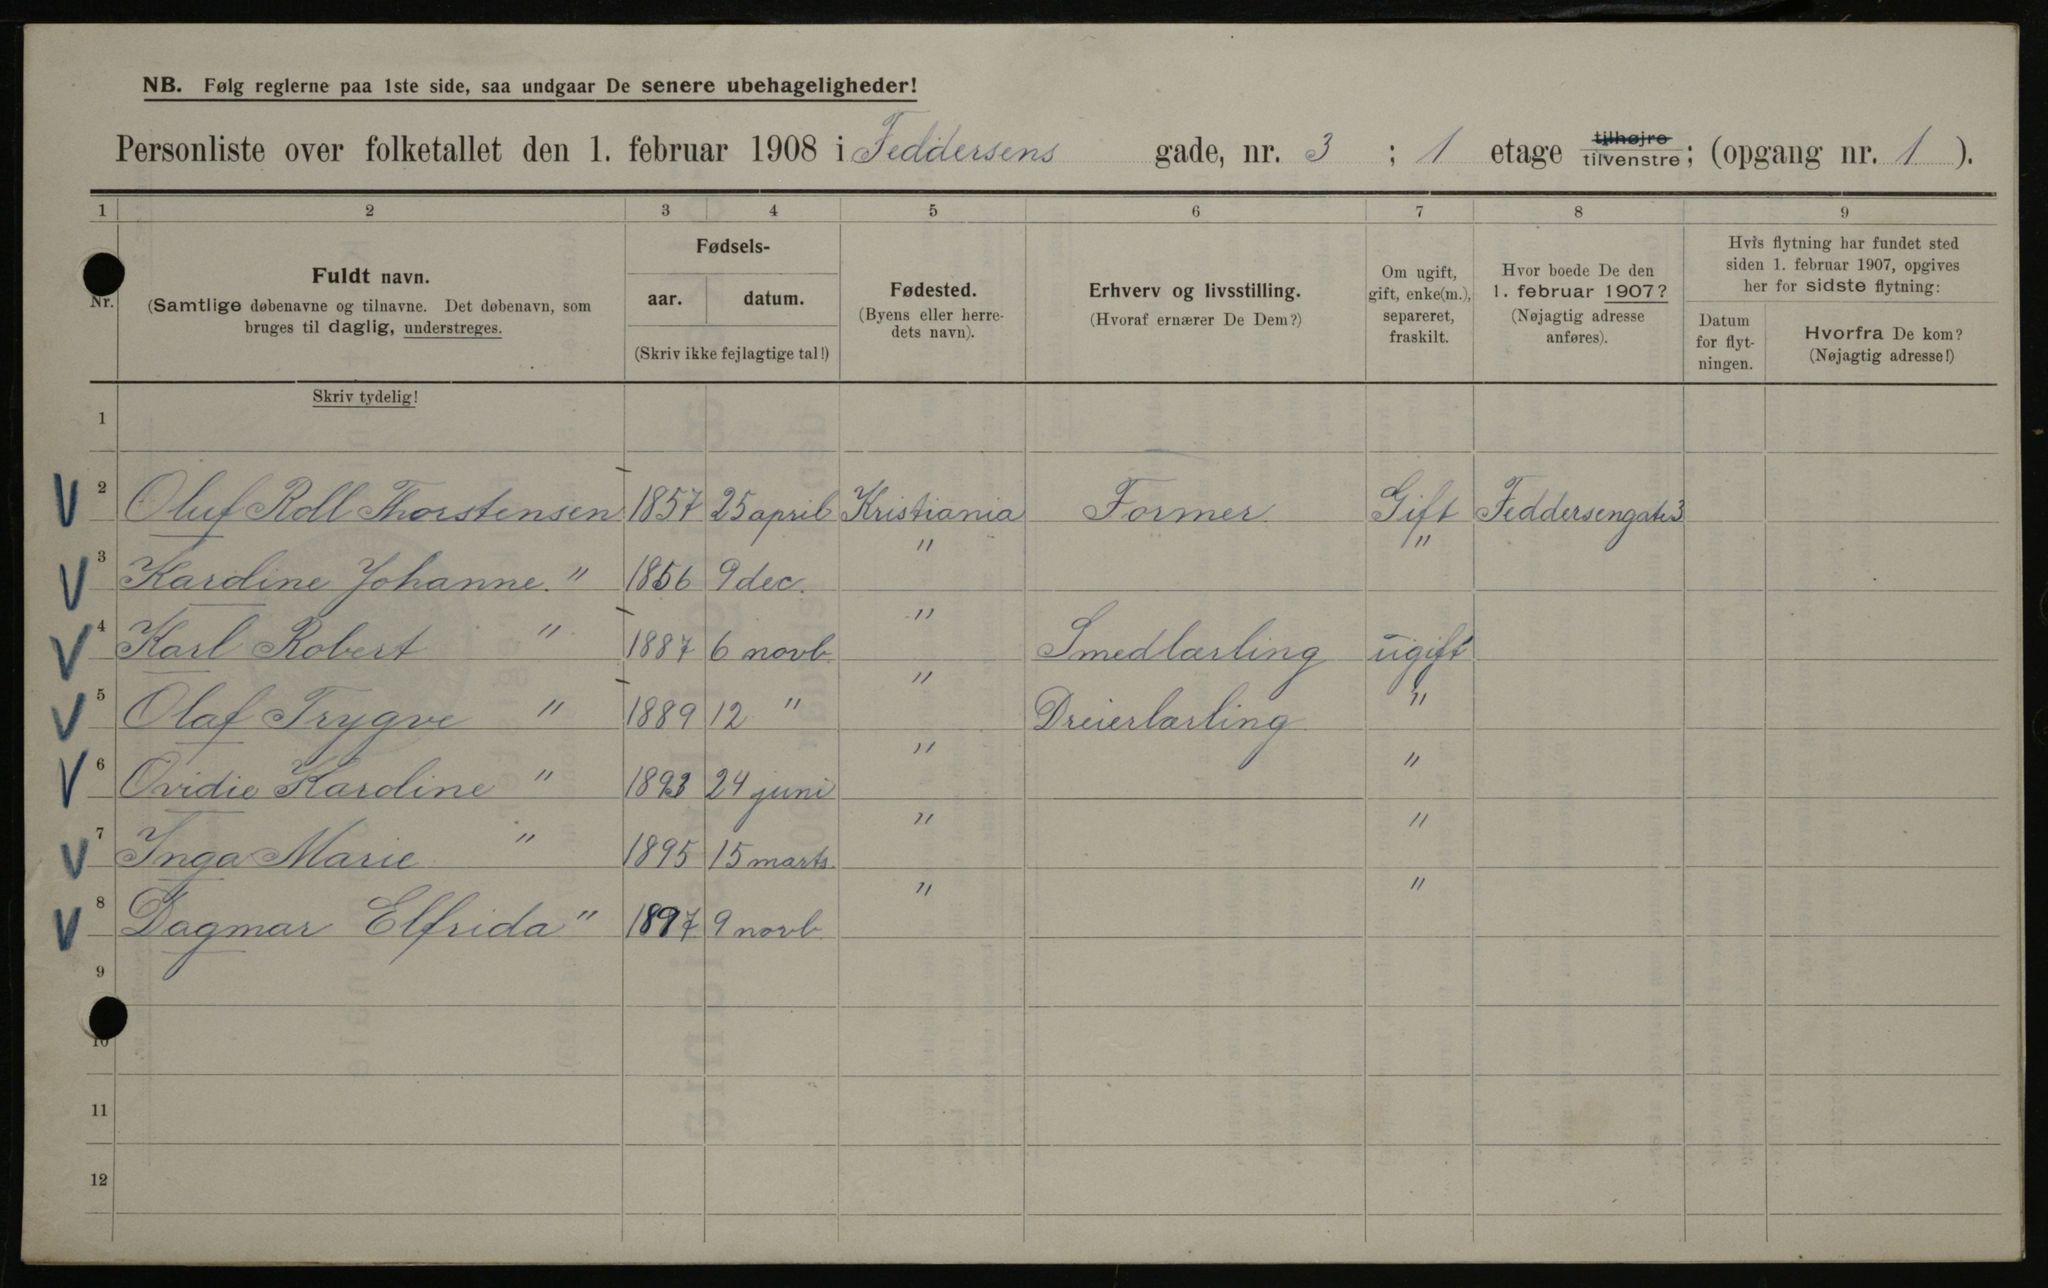 NB. Følg reglerne paa 1ste side, saa undgaar De senere ubehageligheder!
Personliste over folketallet den 1. februar 1908 i Feddersens gade, nr. 3 ; 1 etage tilhøjre tilvenstre; (opgang nr. 1 ).
1 2 3 4 5 6 7 8 9
Nr. Fuldt navn. (Samtlige døbenavne og tilnavne. Det døbenavn, som bruges til daglig, understreges.
Fødsels- aar. datum. (Skriv ikke fejlagtige tal!)
Fødested. (Byens eller herredets navn).
Erhverv og livsstilling. (Hvoraf ernærer De Dem?)
Om ugift, gift, enke(m.), separeret, fraskilt.
Hvor boede De den 1. februar 1907? (Nøjagtig adresse anføres).
Hvis flytning har fundet sted siden 1. februar 1907, opgives her for sidste flytning:
Datum for flytningen.
Hvorfra De kom? (Nøjagtig adresse!)
Skriv tydelig!
1
V 2 Oluf Roll Thorstensen 1857 25 april Kristiania Former Gift Feddersengate 3
V 3 Karoline Johanne. " 1856 9 dec. " "
V 4 Karl Robert " 1887 6 novb. " Smedlærling ugift
V 5 Olaf Trygve " 1889 12 " " Dreierlærling "
V 6 Ovidie Karoline " 1893 24 juni " "
V 7 Inga Marie " 1895 15 marts. " "
V 8 Dagmar Elfrida " 1897 9 novb. " "
9
10
11
12